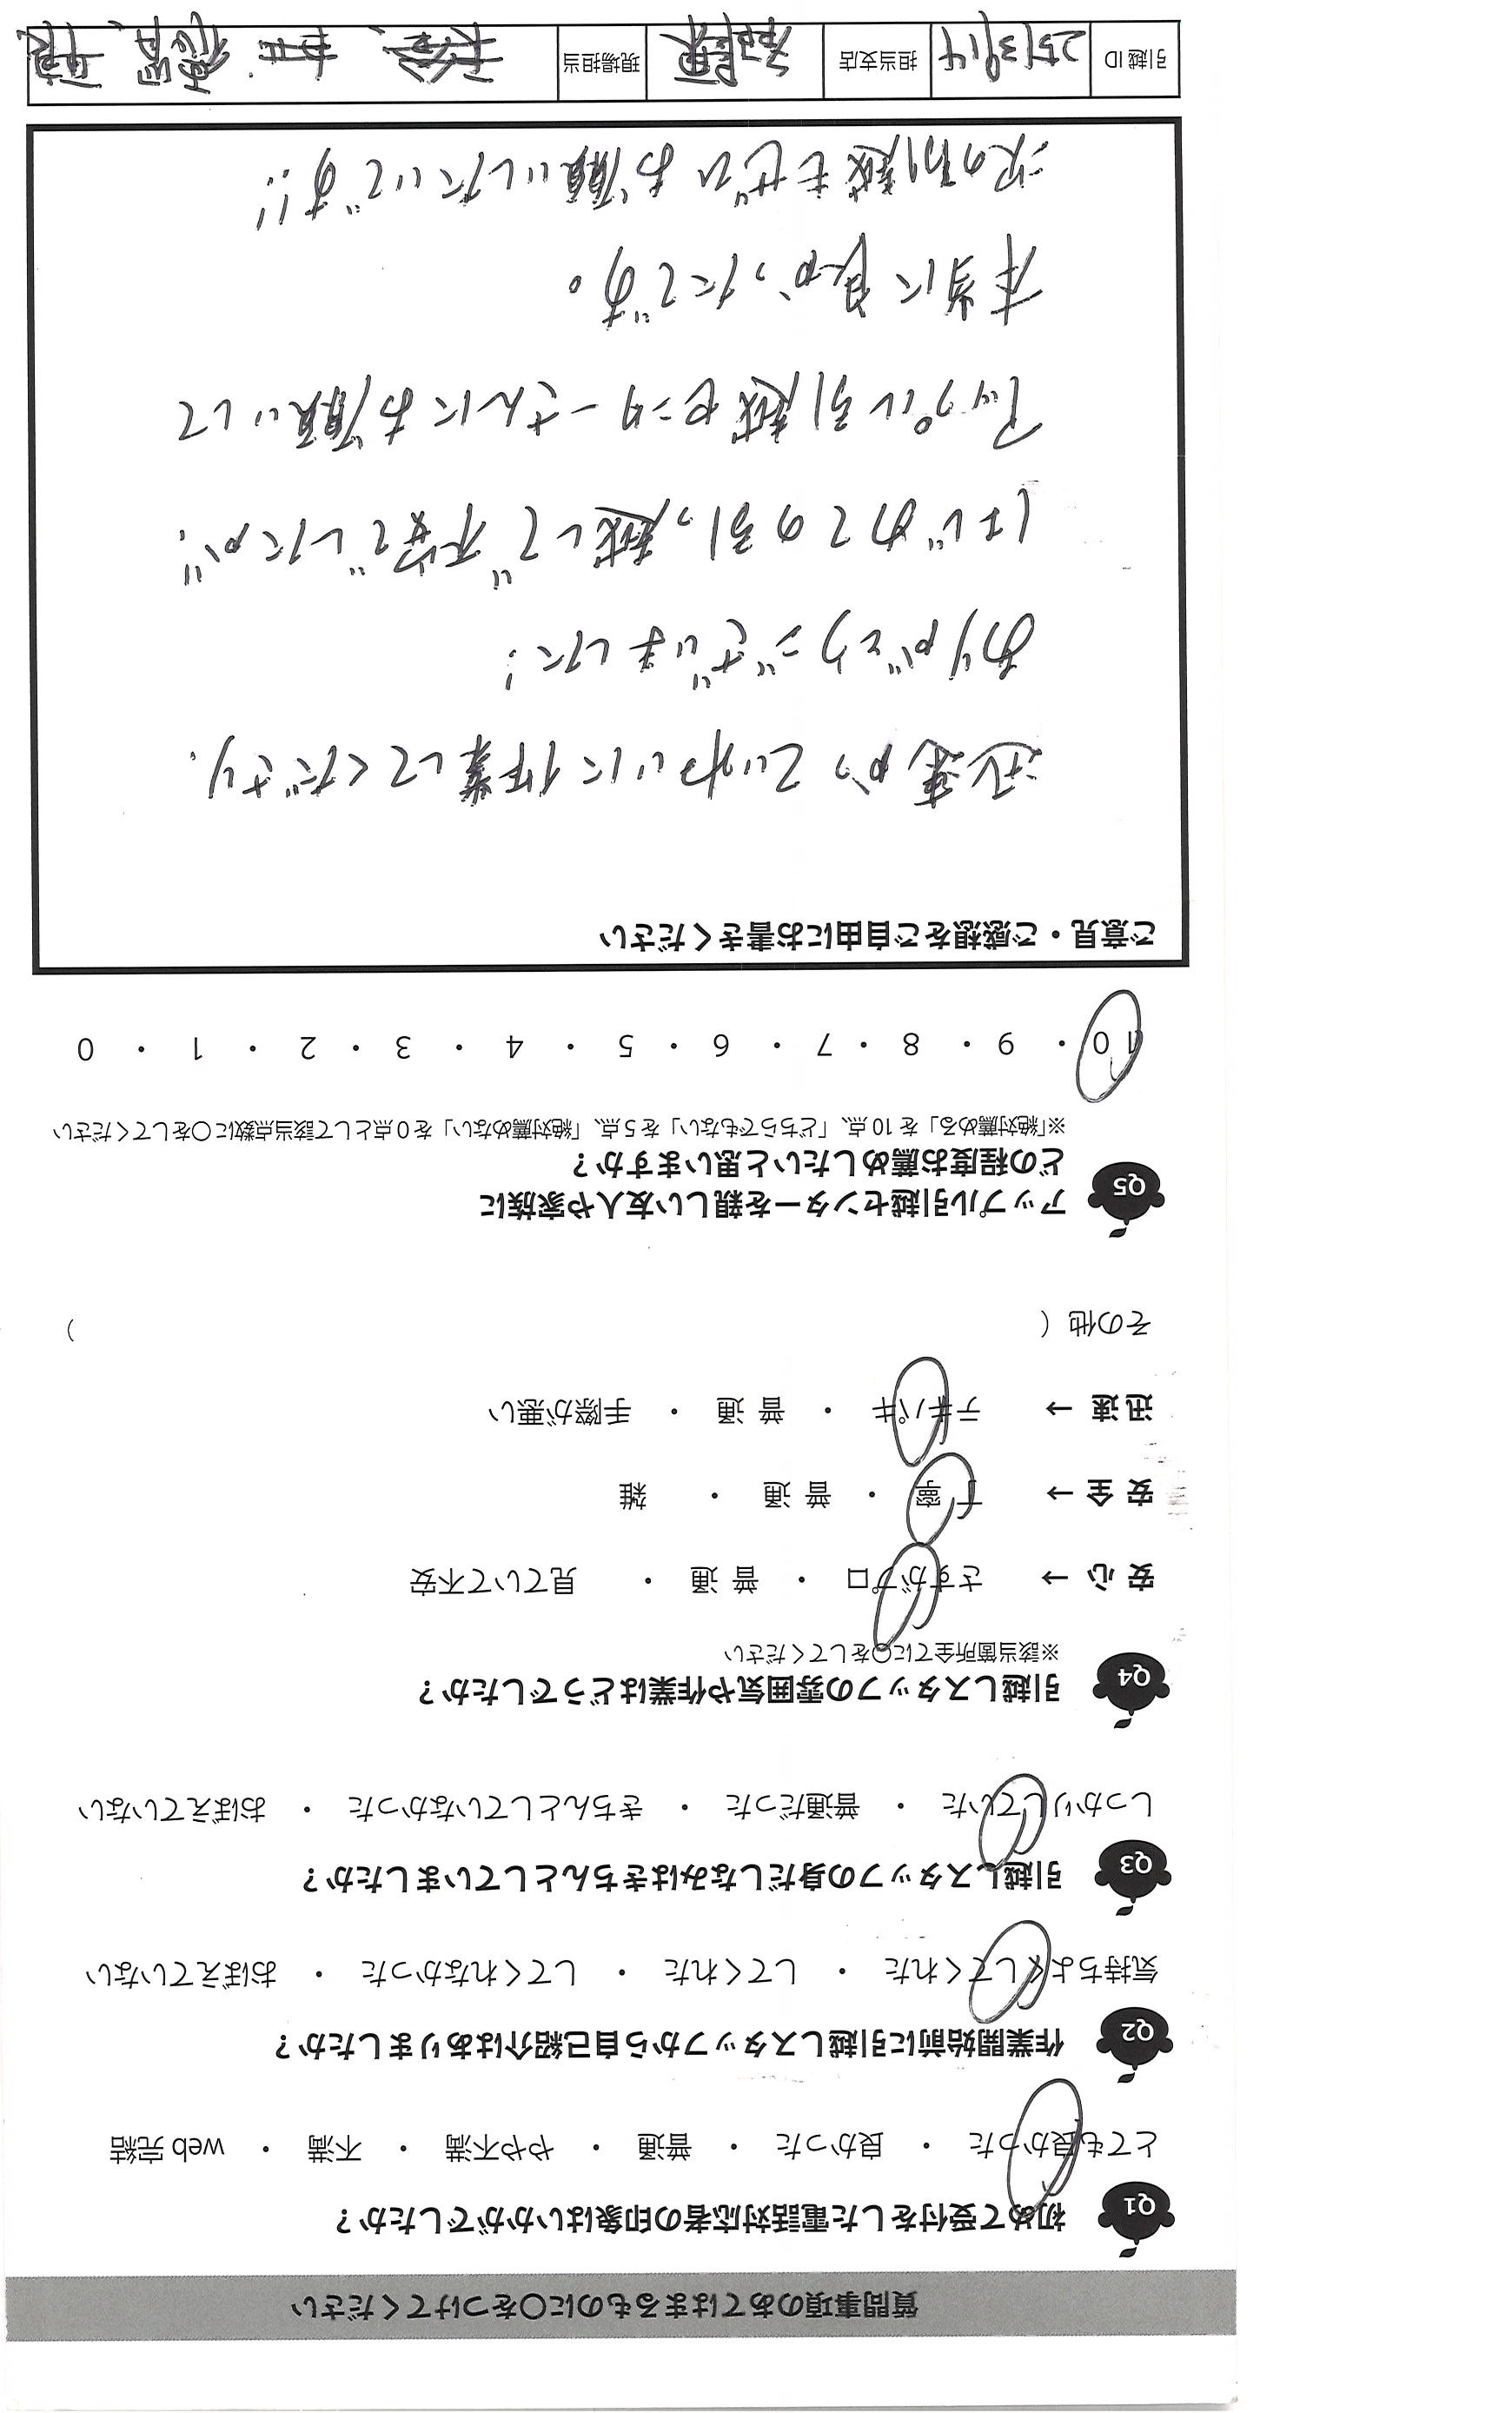 質問事項のあてはまるものに○をつけてください
Q1 初めて受付をした電話対応者の印象はいかがでしたか？
とても良かった ・ 良かった ・ 普通 ・ やや不満 ・ 不満 ・ web 完結
Q2 作業開始前に引越しスタッフから自己紹介はありましたか？
気持ちよくしてくれた ・ してくれた ・ してくれなかった ・ おぼえていない
Q3 引越しスタッフの身だしなみはきちんとしていましたか？
しっかりしていた ・ 普通だった ・ きちんとしていなかった ・ おぼえていない
Q4 引越しスタッフの雰囲気や作業はどうでしたか？
※該当箇所全てに○をしてください
安 心 → さすがプロ ・ 普 通 ・ 見ていて不安
安 全 → 丁寧 ・ 普 通 ・ 雑
迅 速 → テキパキ ・ 普 通 ・ 手際が悪い
その他（ ）
Q5 アップル引越センターを親しい友人や家族に
どの程度お薦めしたいと思いますか？
※「絶対薦める」を 10 点、「どちらでもない」を 5 点、「絶対薦めない」を 0 点として該当点数に○をしてください
10 ・ 9 ・ 8 ・ 7 ・ 6 ・ 5 ・ 4 ・ 3 ・ 2 ・ 1 ・ 0
ご意見・ご感想をご自由にお書きください
迅速かつていねいに作業してくださり、
ありがとうございました！
はじめての引っ越しで不安でしたが、
アップル引越センターさんにお願いして
本当に良かったです。
次の引越もぜひお願いしたいです!!
引越 ID 2513914 担当支店 現場担当